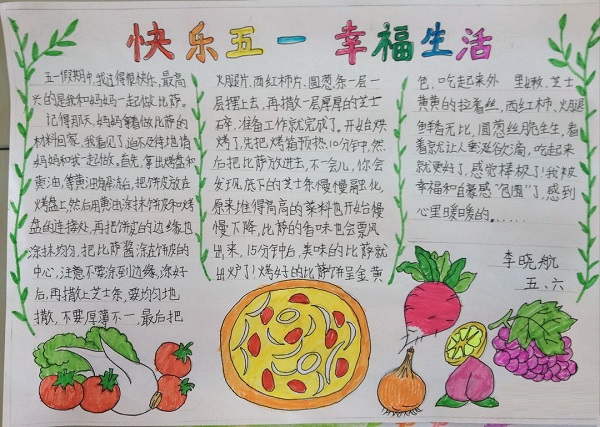 快乐五一 幸福生活
五一假期中,我过得很快乐,最高
兴的是我和妈妈一起做比萨。
记得那天,妈妈拿着做比萨的
材料回家,我看见了迫不及待地请
妈妈和我一起做。首先,拿出烤盘和
黄油,等黄油有层油,把饼皮放在
烤盘上,然后用黄油涂抹饼皮和烤
盘的连接处,再把饼皮的边缘也
涂抹均匀,把比萨酱涂在饼皮的
中心,注意不要涂到边缘,涂好
后,再撒上芝士条,要均匀地
撒,不要厚薄不一,最后把
火腿片、西红柿片、圆葱条一层一
层摆上去,再撒一层厚厚的芝士
碎,准备工作就完成了。开始烘
烤了,先把烤箱预热10分钟,然
后把比萨放进去,不一会儿,你会
发现底下的芝士条慢慢融化,
原来堆得高高的菜料也开始慢
慢下降,比萨的香味也会飘风
出来,15分钟后,美味的比萨就
出炉了!烤好的比萨饼呈金黄
色,吃起来外 里嫩,芝士
黄黄的拉着丝,西红柿、火腿
鲜香无比,圆葱丝脆生生,看
着就让人垂涎欲滴,吃起来
就更好了,感觉棒极了!我被
幸福和自豪感“包围”了,感到
心里暖暖的……
李晓航
五、六